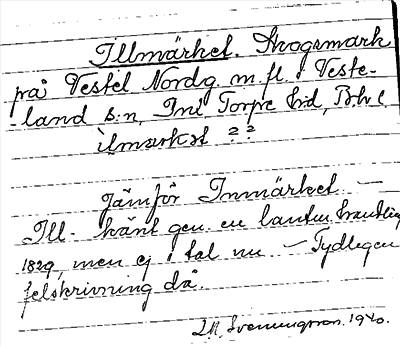 Illmärket. Skogsmark
på Vestel Nordg m.fl. i Veste-
land s:n, Inl Torpe hd, Bhl
ilmarkst ??
Jämför Inmärket –
Ill- känt gen. en lantm.
1829, men ej i tal nu – Tydligen
felskrivning då.
J.M. Svenungsson. 1940.